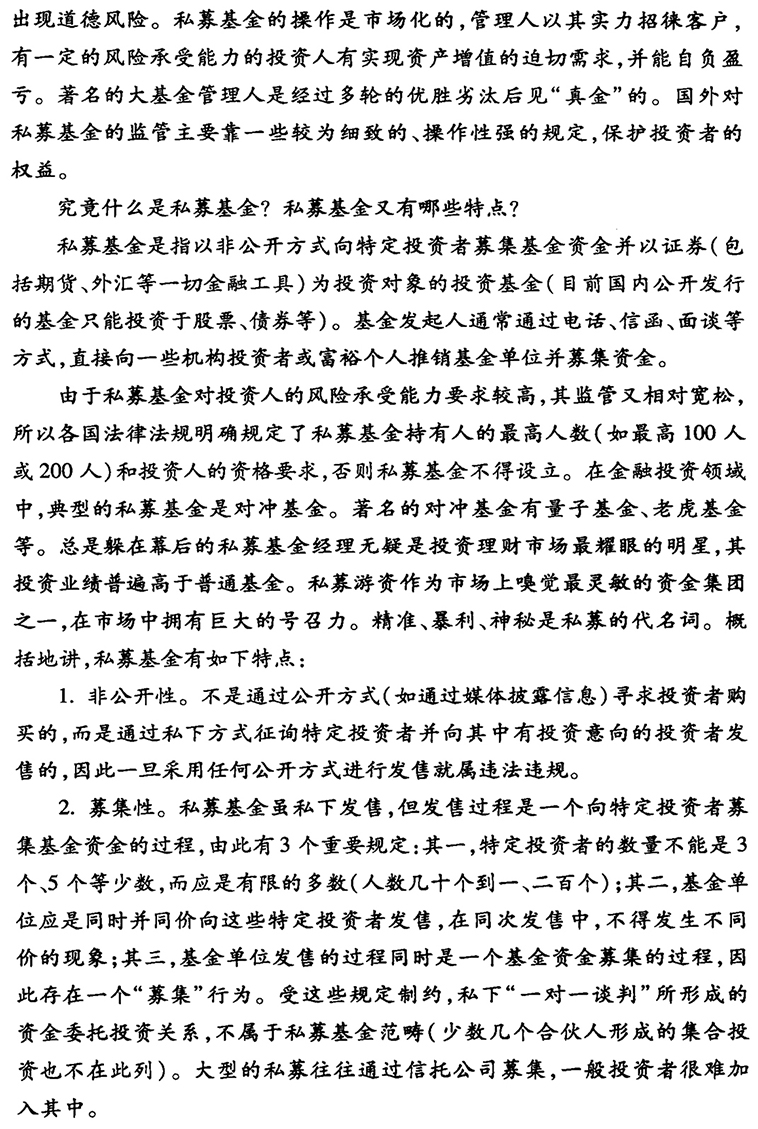 出现道德风险。私募基金的操作是市场化的,管理人以其实力招徕客户,
有一定的风险承受能力的投资人有实现资产增值的迫切需求,并能自负盈
亏。著名的大基金管理人是经过多轮的优胜劣汰后见“真金”的。国外对
私募基金的监管主要靠一些较为细致的、操作性强的规定,保护投资者的
权益。
究竟什么是私募基金?私募基金又有哪些特点?
私募基金是指以非公开方式向特定投资者募集基金资金并以证券(包
括期货、外汇等一切金融工具)为投资对象的投资基金(目前国内公开发行
的基金只能投资于股票、债券等)。基金发起人通常通过电话、信函、面谈等
方式,直接向一些机构投资者或富裕个人推销基金单位并募集资金。
由于私募基金对投资人的风险承受能力要求较高,其监管又相对宽松,
所以各国法律法规明确规定了私募基金持有人的最高人数(如最高100人
或200人)和投资人的资格要求,否则私募基金不得设立。在金融投资领域
中,典型的私募基金是对冲基金。著名的对冲基金有量子基金、老虎基金
等。总是躲在幕后的私募基金经理无疑是投资理财市场最耀眼的明星,其
投资业绩普遍高于普通基金。私募游资作为市场上嗅觉最灵敏的资金集团
之一,在市场中拥有巨大的号召力。精准、暴利、神秘是私募的代名词。概
括地讲,私募基金有如下特点:
1. 非公开性。不是通过公开方式(如通过媒体披露信息)寻求投资者购
买的,而是通过私下方式征询特定投资者并向其中有投资意向的投资者发
售的,因此一旦采用任何公开方式进行发售就属违法违规。
2. 募集性。私募基金虽私下发售,但发售过程是一个向特定投资者募
集基金资金的过程,由此有3个重要规定:其一,特定投资者的数量不能是3
个、5个等少数,而应是有限的多数(人数几十个到一、二百个);其二,基金单
位应是同时并同价向这些特定投资者发售,在同次发售中,不得发生不同
价的现象;其三,基金单位发售的过程同时是一个基金资金募集的过程,因
此存在一个“募集”行为。受这些规定制约,私下“一对一谈判”所形成的
资金委托投资关系,不属于私募基金范畴(少数几个合伙人形成的集合投
资也不在此列)。大型的私募往往通过信托公司募集,一般投资者很难加
入其中。